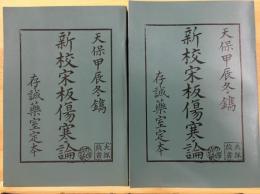 天保甲辰冬鐫
新校宋板傷寒論
存誠藥室定本
天保甲辰冬鐫
新校宋板傷寒論
存誠藥室定本